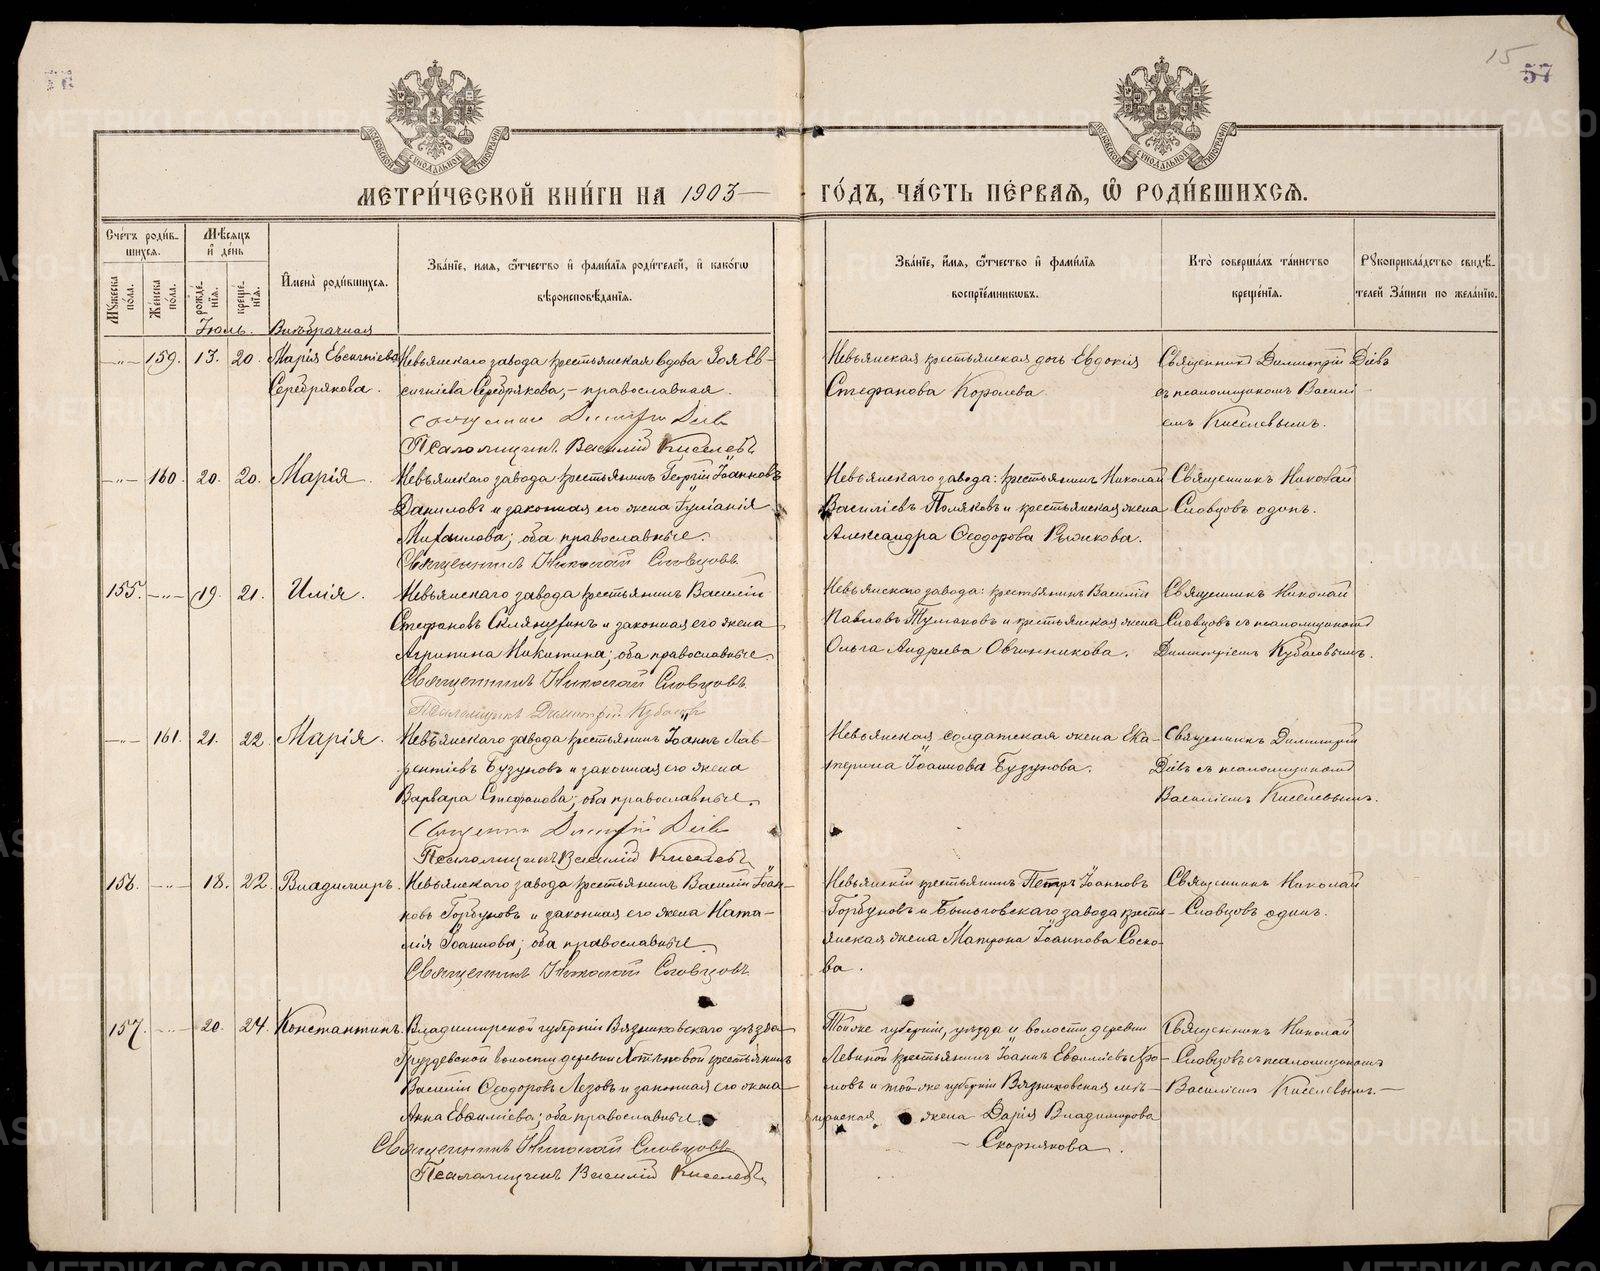 15
57
МОСКОВСКОЙ СѴНОДАЛЬНОЙ ТИПОГРАФІИ
МОСКОВСКОЙ СѴНОДАЛЬНОЙ ТИПОГРАФІИ
МЕТРИ́ЧЕСКОЙ КНИ́ГИ НА 1903 —
ГО́ДЪ, ЧА́СТЬ ПЕ́РВАЯ, Ѽ РОДИ́ВШИХСЯ.
Сче́тъ роди́в-
шихся.
Мѣ́сяцъ
и҆ де́нь
Мꙋ́жеска по́ла.
Же́нска по́ла.
рожде́-нїя.
креще́-нїя.
И҆мена̀ роди́вшихся.
Зва́нїе, имя, ѻ҆́тчество и҆ фами́лїя роди́телей, и҆ како́гѡ
вѣроисповѣ́данїя.
Зва́нїе, и҆́мя, ѻ҆́тчество и҆ фами́лїя
воспрїе́мникѡвъ.
Кто̀ соверша́лъ та́инство
креще́нїя.
Рꙋкоприкла́дство свидѣ́-
телей За́писи по жела́нїю.
Іюль. Внѣбрачная
—„— 159. 13. 20. Марія Евсигніева
Серебрякова.
Невьянскаго завода крестьянская вдова Зоя Ев-
сигніева Серебрякова, — православная.
Священник Димитрій Діевъ
Псаломщикъ Василій Киселевъ
Невьянская крестьянская дочь Евдокія
Стефанова Королева.
Священникъ Димитрій Діевъ
съ псаломщикомъ Василі-
емъ Киселевымъ.
—„— 160. 20. 20. Марія.
Невьянскаго завода крестьянинъ Георгій Іоанновъ
Даниловъ и законная его жена Іуліанія
Михаилова; оба православные.
Священникъ Николай Словцовъ
Невьянскаго завода: крестьянинъ Николай
Василіевъ Поляковъ и крестьянская жена
Александра Ѳеодорова Рыжкова.
Священникъ Николай
Словцовъ одинъ.
155. —„— 19. 21. Илія.
Невьянскаго завода крестьянинъ Василій
Стефановъ и законная его жена
Агрипина Никитина; оба православные.
Священникъ Николай Словцовъ
Псаломщикъ Димитрій Кубасовъ
Невьянскаго завода: крестьянинъ Василій
Павловъ Тумаковъ и крестьянская жена
Ольга Андреева Овчинникова.
Священникъ Николай
Словцовъ съ псаломщикомъ
Димитріемъ Кубасовымъ.
—„— 161. 21. 22. Марія.
Невьянскаго завода крестьянинъ Іоаннъ Лав-
рентіевъ Бузуновъ и законная его жена
Варвара Стефанова; оба православные.
Священник Димитрій Діевъ
Псаломщикъ Василій Киселевъ
Невьянская солдатская жена Ека-
терина Іоаннова Бузунова.
Священникъ Димитрій
Діевъ съ псаломщикомъ
Василіемъ Киселевымъ.
156. —„— 18. 22. Владимиръ.
Невьянскаго завода крестьянинъ Василій Іоан-
новъ Горбуновъ и законная его жена Ната-
лія Іоаннова; оба православные.
Священникъ Николай Словцовъ
Невьянскій крестьянинъ Петръ Іоанновъ
Горбуновъ и Быньговскаго завода кресть-
янская жена Матрона Іоаннова Соско-
ва.
Священникъ Николай
Словцовъ одинъ.
157. —„— 20. 24. Константинъ.
Владимирской губерніи Вязниковскаго уѣзда
Груздевской волости деревни крестьянинъ
Василій Ѳеодоровъ Лезовъ и законная его жена
Анна Евѳиміева; оба православные.
Священникъ Николай Словцовъ
Псаломщикъ Василій Киселевъ
Той же губерніи, уѣзда и волости деревни
Левиной крестьянинъ Іоаннъ Евѳиміевъ
и той же губерніи Вязниковская мѣ-
щанская жена Дарія Владимирова
— Скорнякова.
Священникъ Николай
Словцовъ съ псаломщикомъ
Василіемъ Киселевымъ. —
METRIKI.GASO-URAL.RU